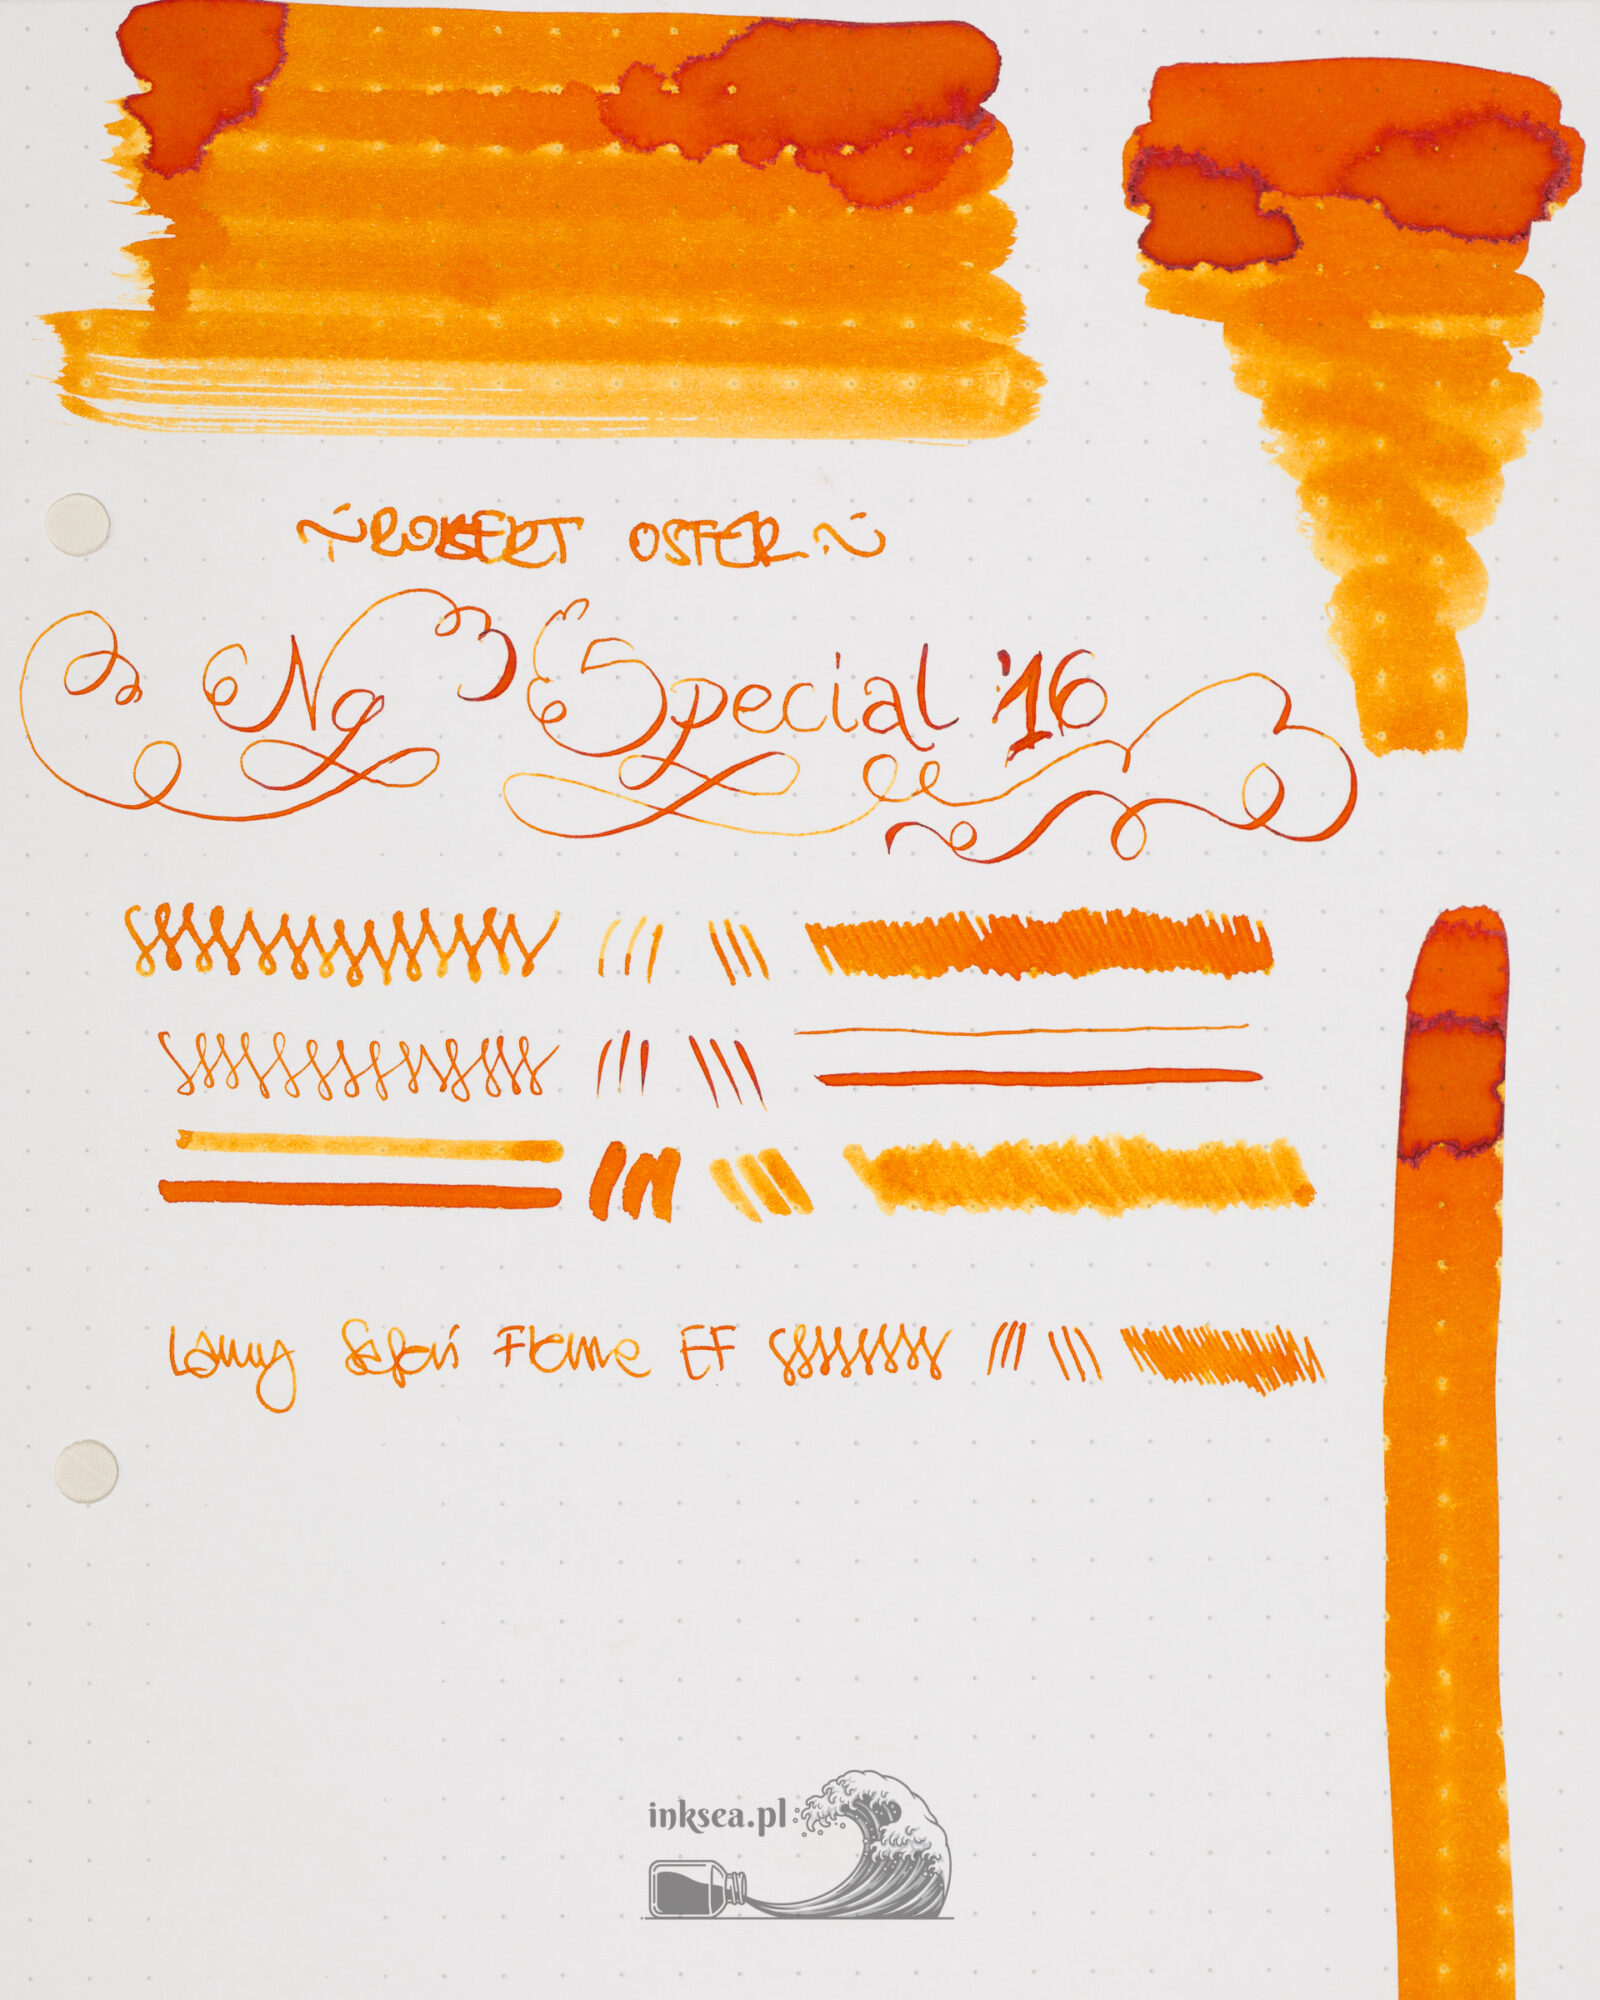 ~ROBERT OSTER~
Ng Special '16
Lamy Safari Flame EF
inksea.pl